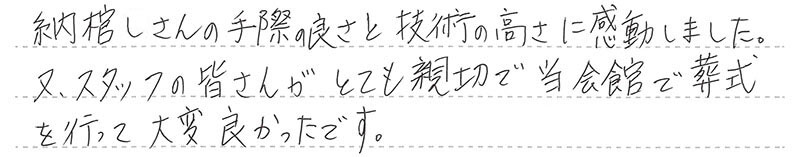 納棺しさんの手際の良さと技術の高さに感動しました。
又、スタッフの皆さんがとても親切で当会館で葬式
を行って大変良かったです。